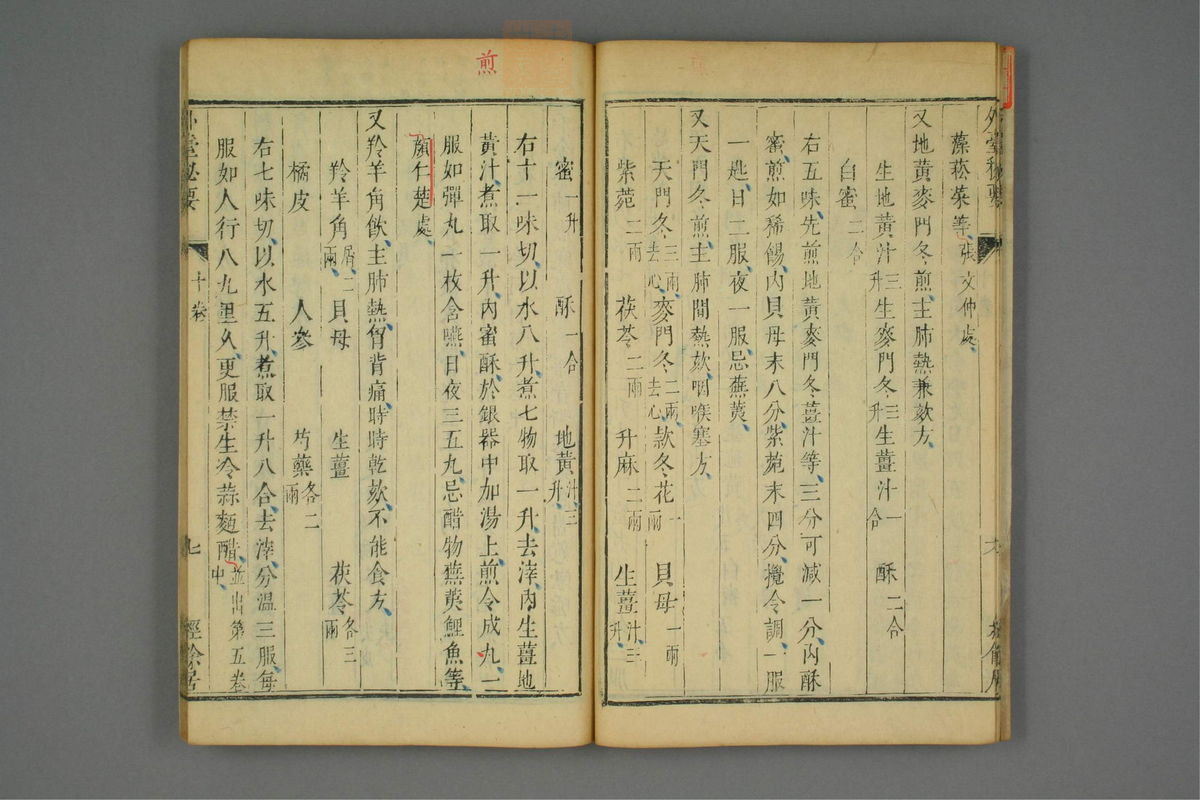 外臺秘要
藻菘菜等張文仲處
又地黃麥門冬煎主肺熱兼欬方
生地黃汁三升生麥門冬三升生薑汁一合 酥二合
白蜜二合
右五味先煎地黃麥門冬薑汁等三分可減一分內酥
蜜煎如稀餳內貝母末八分紫菀末四分攪令調一服
一匙日二服夜一服忌蕪荑
又天門冬煎主肺間熱欬咽喉塞方
天門冬三兩去心麥門冬二兩去心款冬花一兩 貝母一兩
紫菀二兩 茯苓二兩 升麻二兩 生薑汁三升
煎
蜜一升 酥一合 地黃汁三升
右十一味切以水八升煮七物取一升去滓內生薑地
黃汁煮取一升內蜜酥於銀器中加湯上煎令成丸一
服如彈丸一枚含嚥日夜三五丸忌醋物蕪荑鯉魚等
顏仁楚處
又羚羊角飲主肺熱胷背痛時時乾欬不能食方
羚羊角屑二兩 貝母 生薑 茯苓各三兩
橘皮 人參 芍藥各二兩
右七味切以水五升煮取一升八合去滓分溫三服每
服如人行八九里久更服禁生冷蒜麵醋並出第五卷中
外臺秘要 十卷 七 經餘居